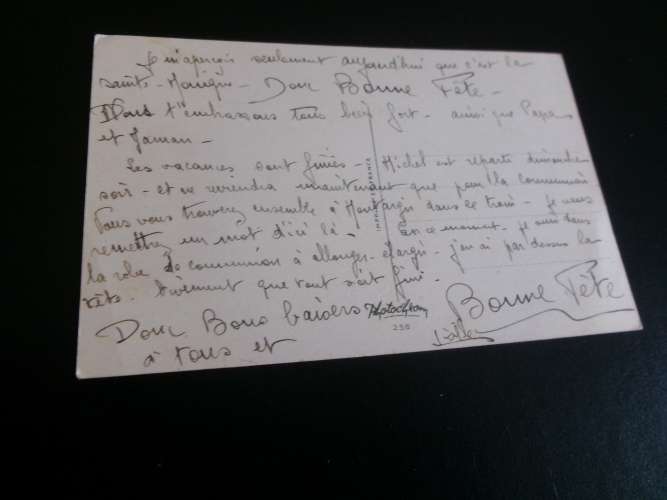 Je m'aperçois seulement aujourd'hui que c'est la
sainte - Monique - Donc Bonne Fête -
Nous t'embrassons tous bien fort - ainsi que Papa
et Maman -
Les vacances sont finies - Michel est reparti dimanche
soir - et ne reviendra maintenant que pour la communion
Vous vous trouverez ensemble à Montargis dans le train - je vous
remettrez un mot d'ici là - En ce moment - je suis dans
la robe de communion à allonger - élargir - j'en ai par dessus la
tête. Vivement que tout soit fini -
Donc Bons baisers
à tous et
Bonne Fête
Photochrom
230